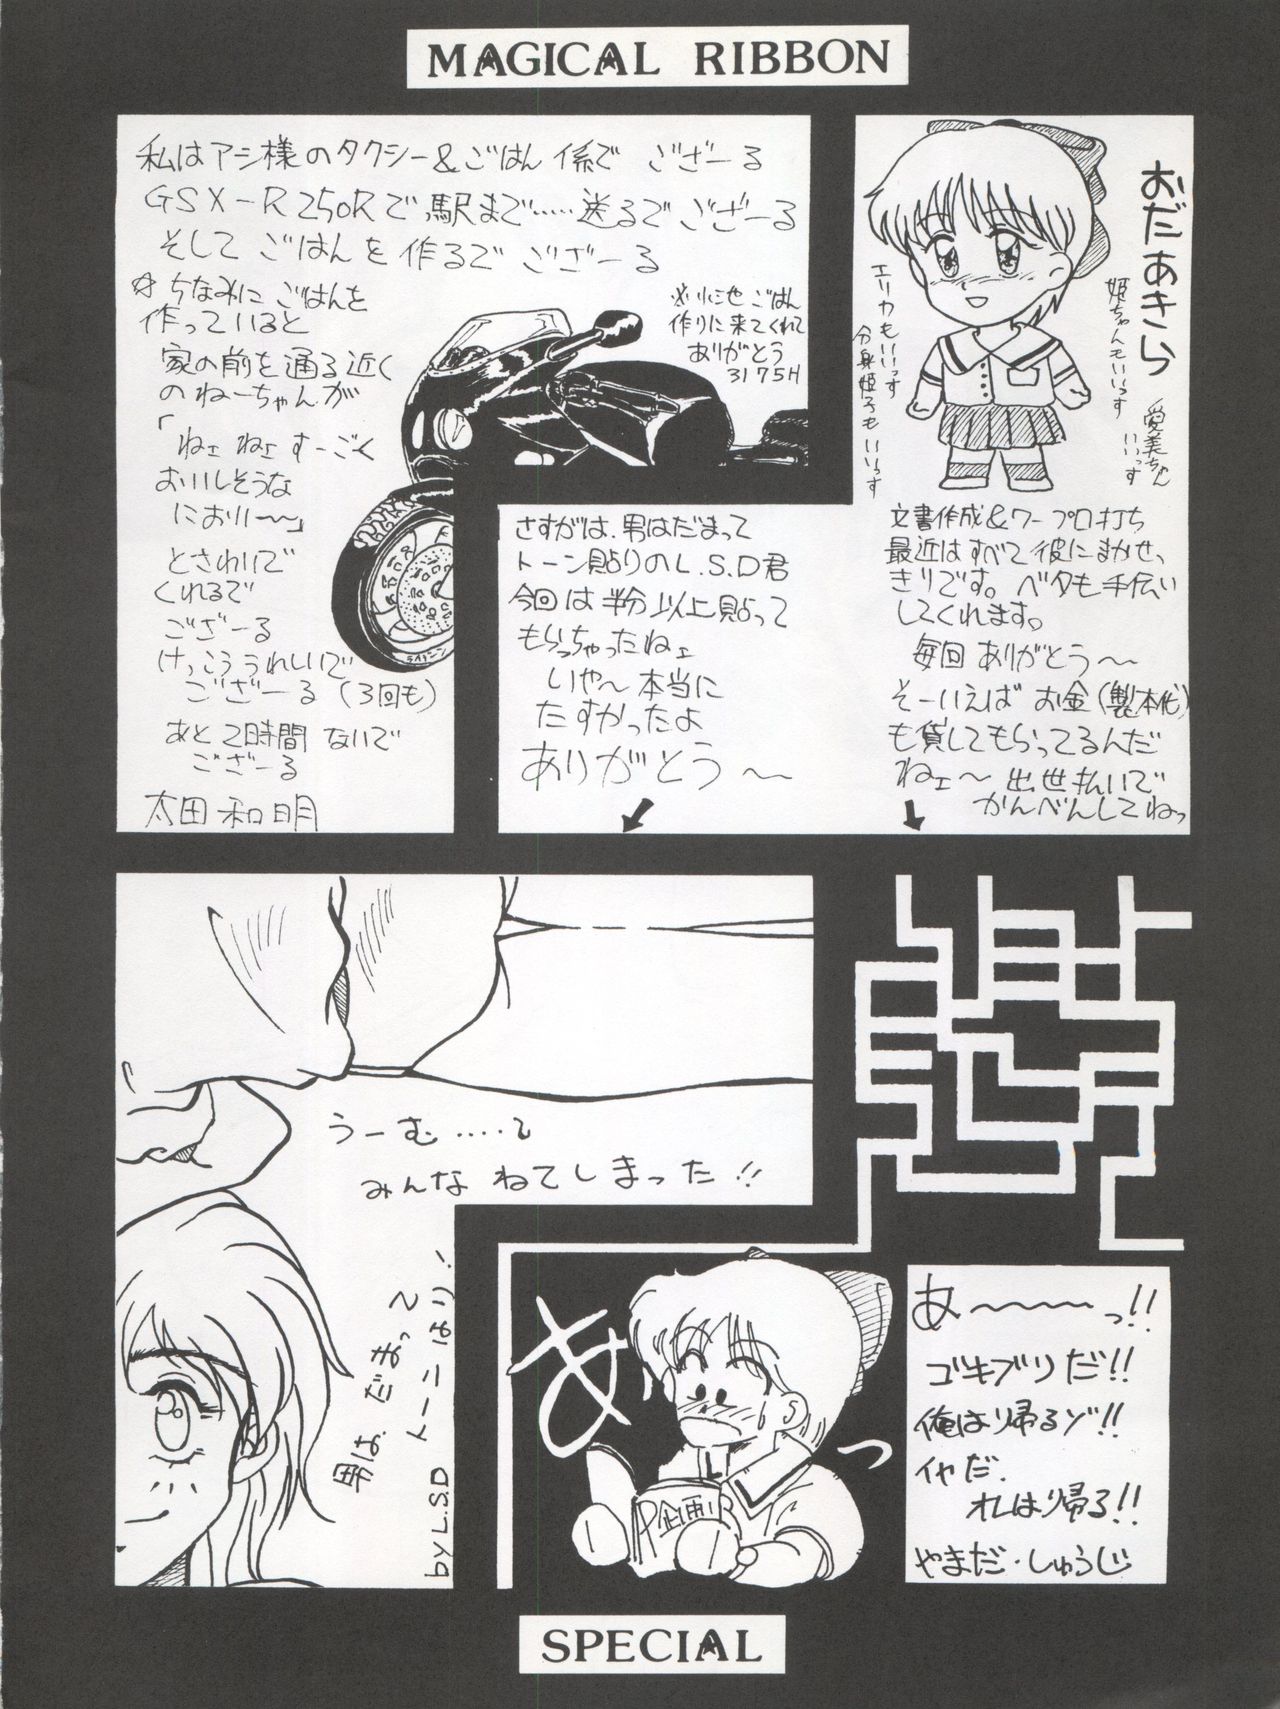 MAGICAL RIBBON
私はアシ様のタクシー＆ごはん係で ござーる
GSX-R250Rで駅まで……送るでござーる
そして ごはんを作るで ござーる
☆ちなみに ごはんを
作っていると
家の前を通る近く
のねーちゃんが
「ねェ ねェ すーごく
おいしそうな
におい〜〜」
とさわいで
くれるで
ござーる
けっこううれしいで
ござーる (3回も)
あと2時間 ないで
ござーる
太田和明
ごはん
作りに来てくれて
ありがとう
3175H
おだあきら
姫ちゃんもいいっす
愛美ちゃん
いいっす
エリカもいいっす
分身姫子もいいっす
さすがは、男はだまって
トーン貼りのL.S.D君
今回は半分以上貼って
もらっちゃったねェ
いや〜本当に
たすかったよ
ありがとう〜
文書作成＆ワープロ打ち
最近はすべて彼にまかせ、
きりです。ベタも手伝い
してくれます。
毎回ありがとう〜
そーいえば お金(製本代)
も貸してもらってるんだ
ねェ〜 出世払いで
かんべんしてねっ
うーむ‥‥て
みんな ねてしまった!!
男は、だまって
トーンはり!
by L.S.D
あ
っ
P企画
あ〜〜〜〜っ!!
ゴキブリだ!!
俺は帰るゾ!!
イヤだ.
オレは帰る!!
やまだ・しゅうじ
SPECIAL